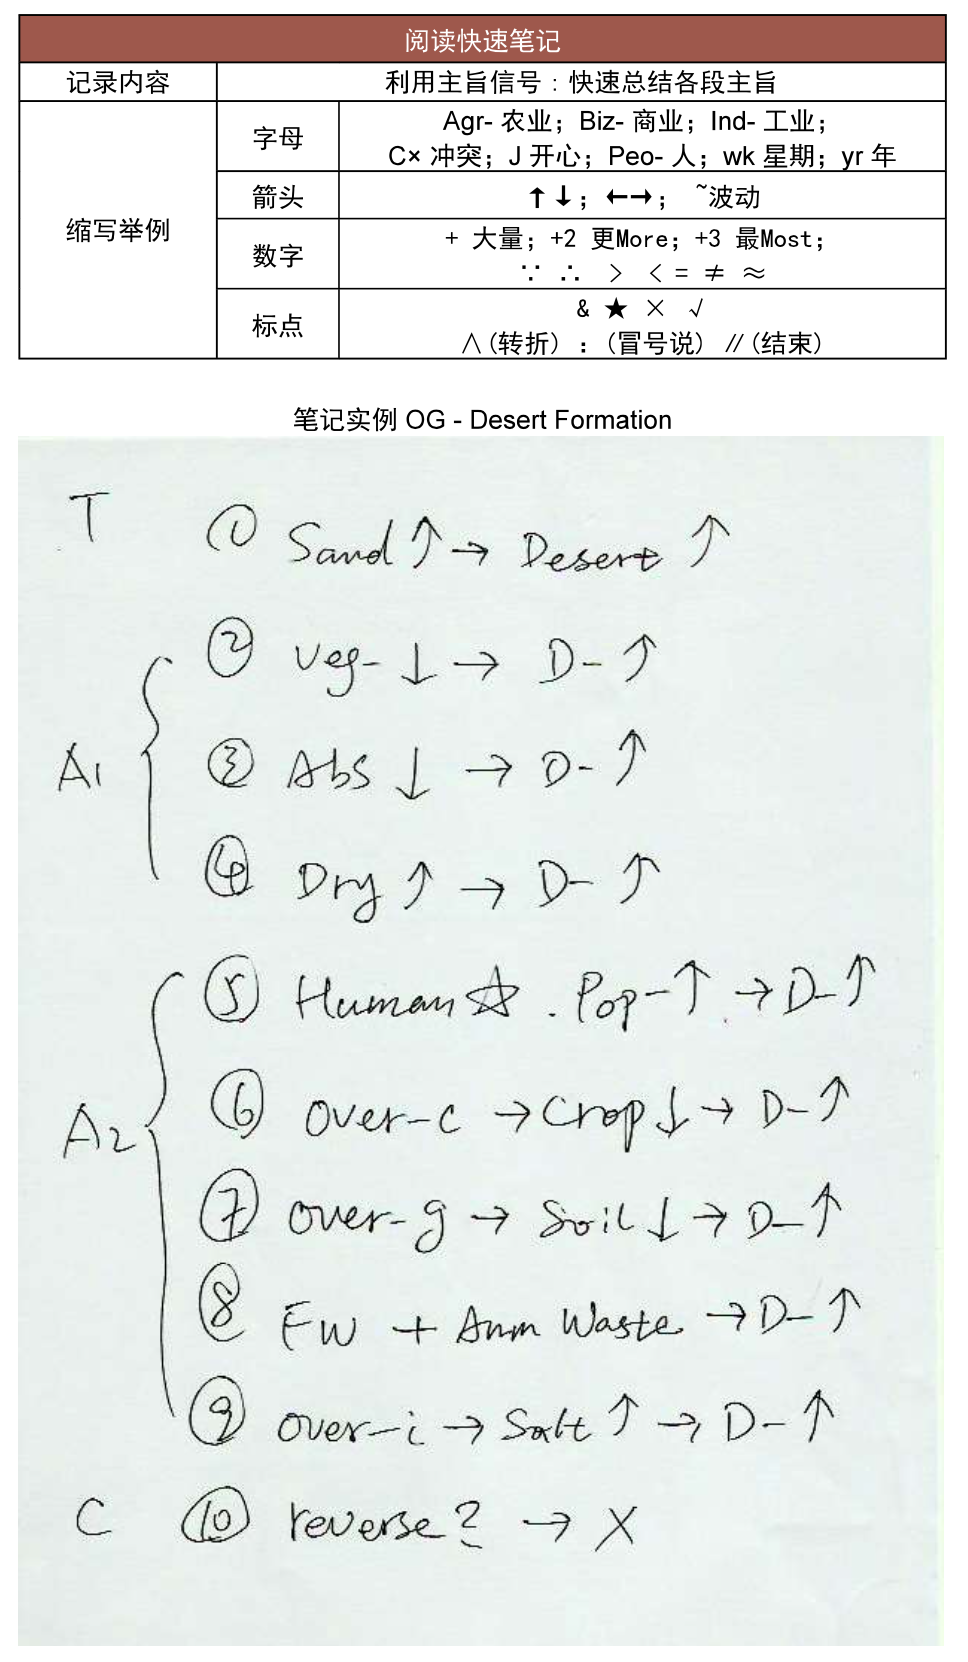 阅读快速笔记
记录内容
利用主旨信号：快速总结各段主旨
缩写举例
字母
Agr- 农业；Biz- 商业；Ind- 工业；
C× 冲突；J 开心；Peo- 人；wk 星期；yr 年
箭头
↑↓；←→； ~波动
数字
+ 大量；+2 更More；+3 最Most；
∵ ∴ > < = ≠ ≈
标点
& ★ × √
∧(转折) ：(冒号说) ∥(结束)
笔记实例 OG - Desert Formation
T ① Sand ↑ → Desert ↑
② Veg- ↓ → D- ↑
A1 ③ Abs ↓ → D- ↑
④ Dry ↑ → D- ↑
⑤ Human ☆ . Pop- ↑ → D- ↑
A2 ⑥ over-c → Crop ↓ → D- ↑
⑦ over-g → Soil ↓ → D- ↑
⑧ FW + Anm Waste → D- ↑
⑨ over-i → Salt ↑ → D- ↑
C ⑩ reverse? → X